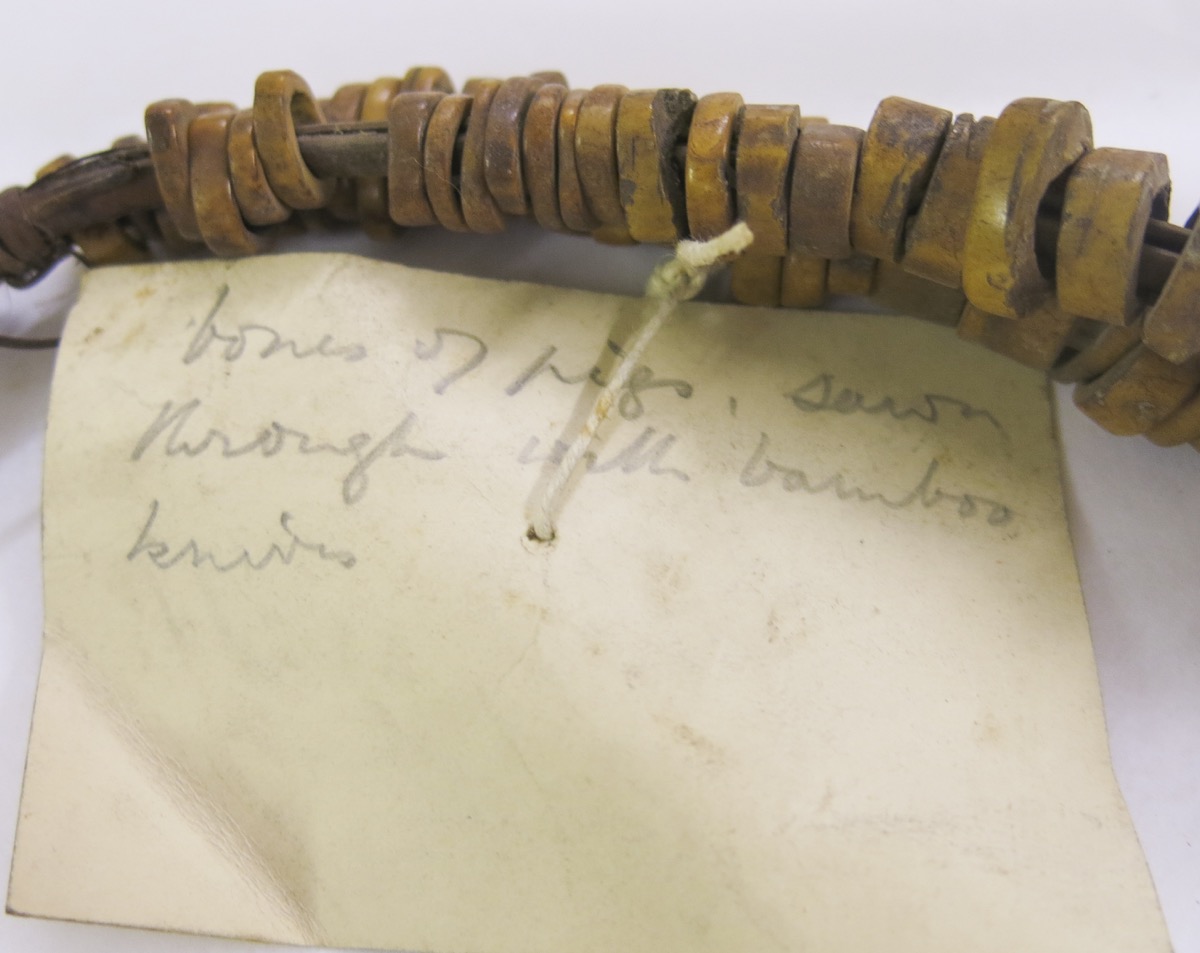 bones of pigs, sawn
through with bamboo
knives